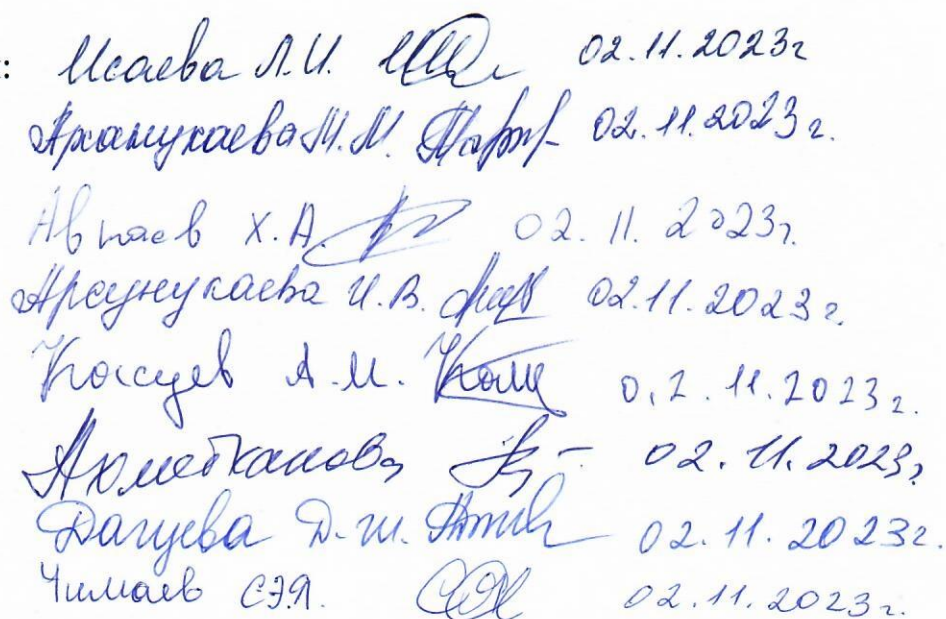 : Исаева Л.И. 02.11.2023г
Арханукаева М.М. 02.11.2023г.
Х.А. 02.11.2023г.
Арсунукаева И.В. 02.11.2023г.
А.М. 0.2.11.2023г.
Ахметханова 02.11.2023г
Дагуева Д.Ш. 02.11.2023г.
Чимаев С.Э.Я. 02.11.2023г.